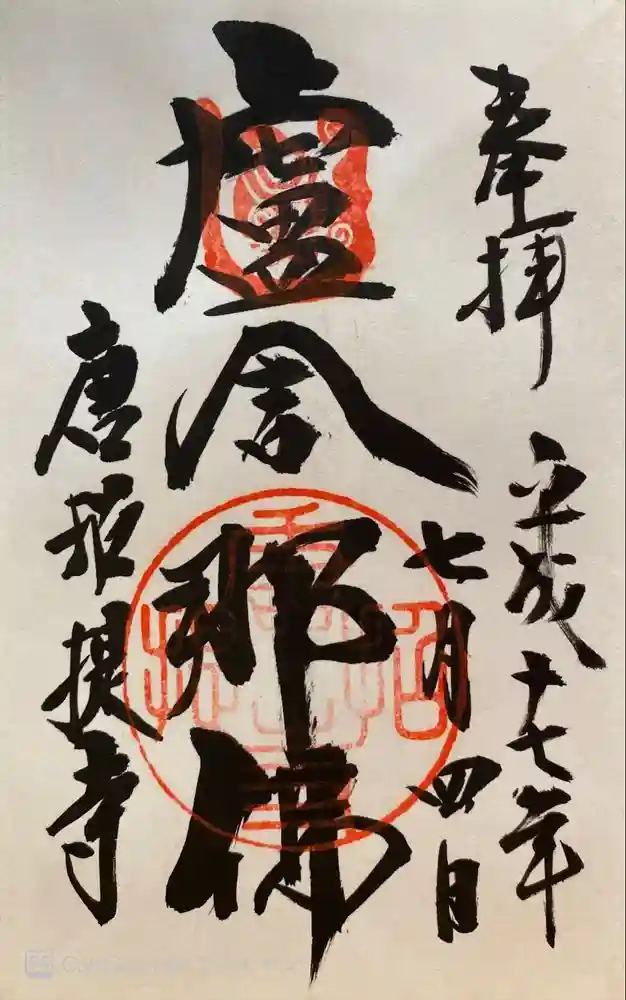 奉拝
平成十七年
七月四日
盧舎那佛
唐招提寺